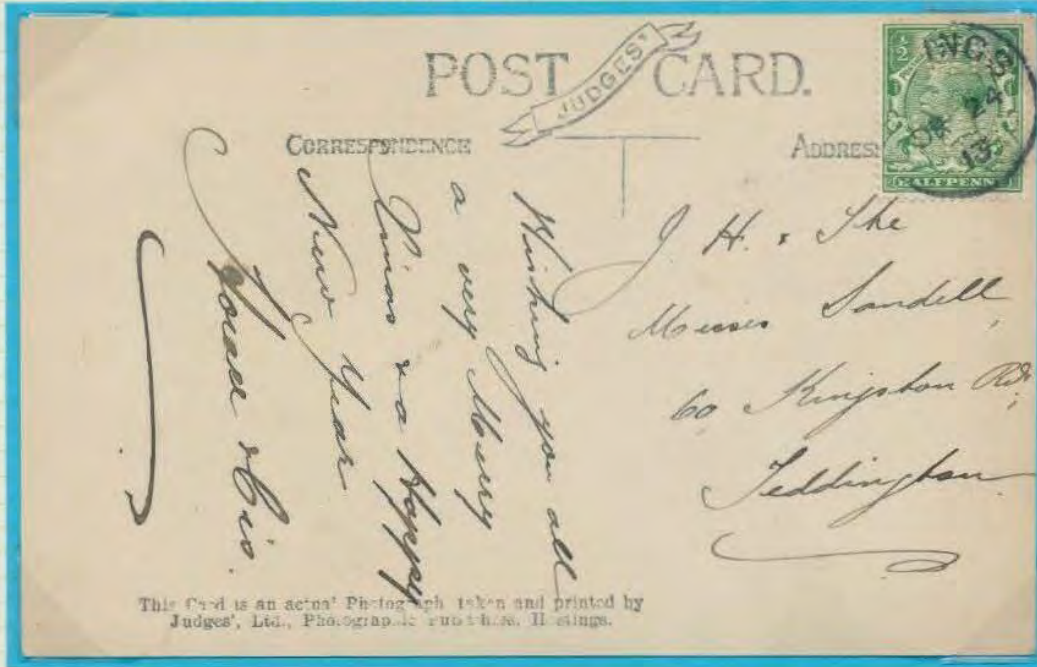 POST CARD.
JUDGES'
CORRESPONDENCE
ADDRESS
INGS
24
13
½
HALFPENNY
Wishing you all
a very Merry
Xmas & a Happy
New Year
J H. & The
Misses Sandell,
60 Kingston Rd,
Teddington
This Card is an actual Photograph taken and printed by
Judges', Ltd., Photographic Publishers, Hastings.